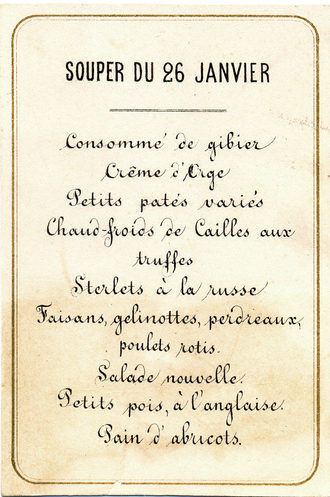 SOUPER DU 26 JANVIER
Consommé de gibier
Crême d'Orge
Petits patés variés
Chaud-froids de Cailles aux
truffes
Sterlets à la russe
Faisans, gelinottes, perdreaux,
poulets rotis.
Salade nouvelle.
Petits pois, à l'anglaise.
Pain d'abricots.